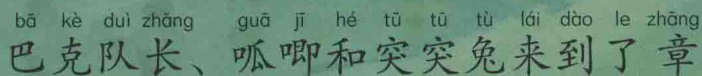 bā kè duì zhǎng guā jī hé tū tū tù lái dào le zhāng
巴克队长、呱唧和突突兔来到了章